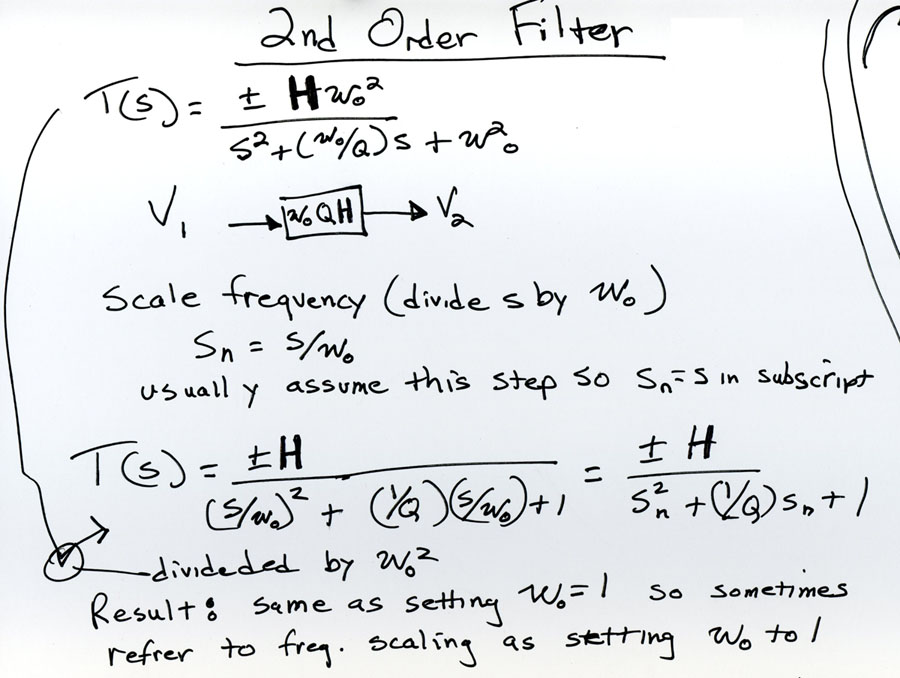 2nd Order Filter
T(s) = ± Hw₀² / s²+(w₀/Q)s + w₀²
V₁ → w₀QH → V₂
Scale frequency (divide s by w₀)
Sn = s/w₀
usually assume this step so Sn=s in subscript
T(s) = ±H / (s/w₀)² + (1/Q)(s/w₀)+1 = ± H / Sn² + (1/Q)Sn + 1
divideded by w₀²
Result: same as setting w₀=1 so sometimes
refrer to freq. scaling as setting w₀ to 1